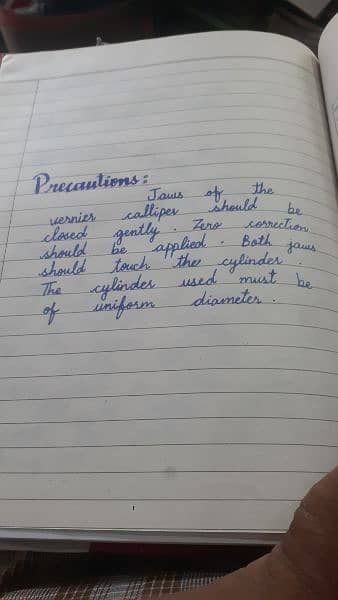 Precautions:
Jaws of the
vernier calliper should be
closed gently. Zero correction
should be applied. Both jaws
should touch the cylinder.
The cylinder used must be
of uniform diameter.